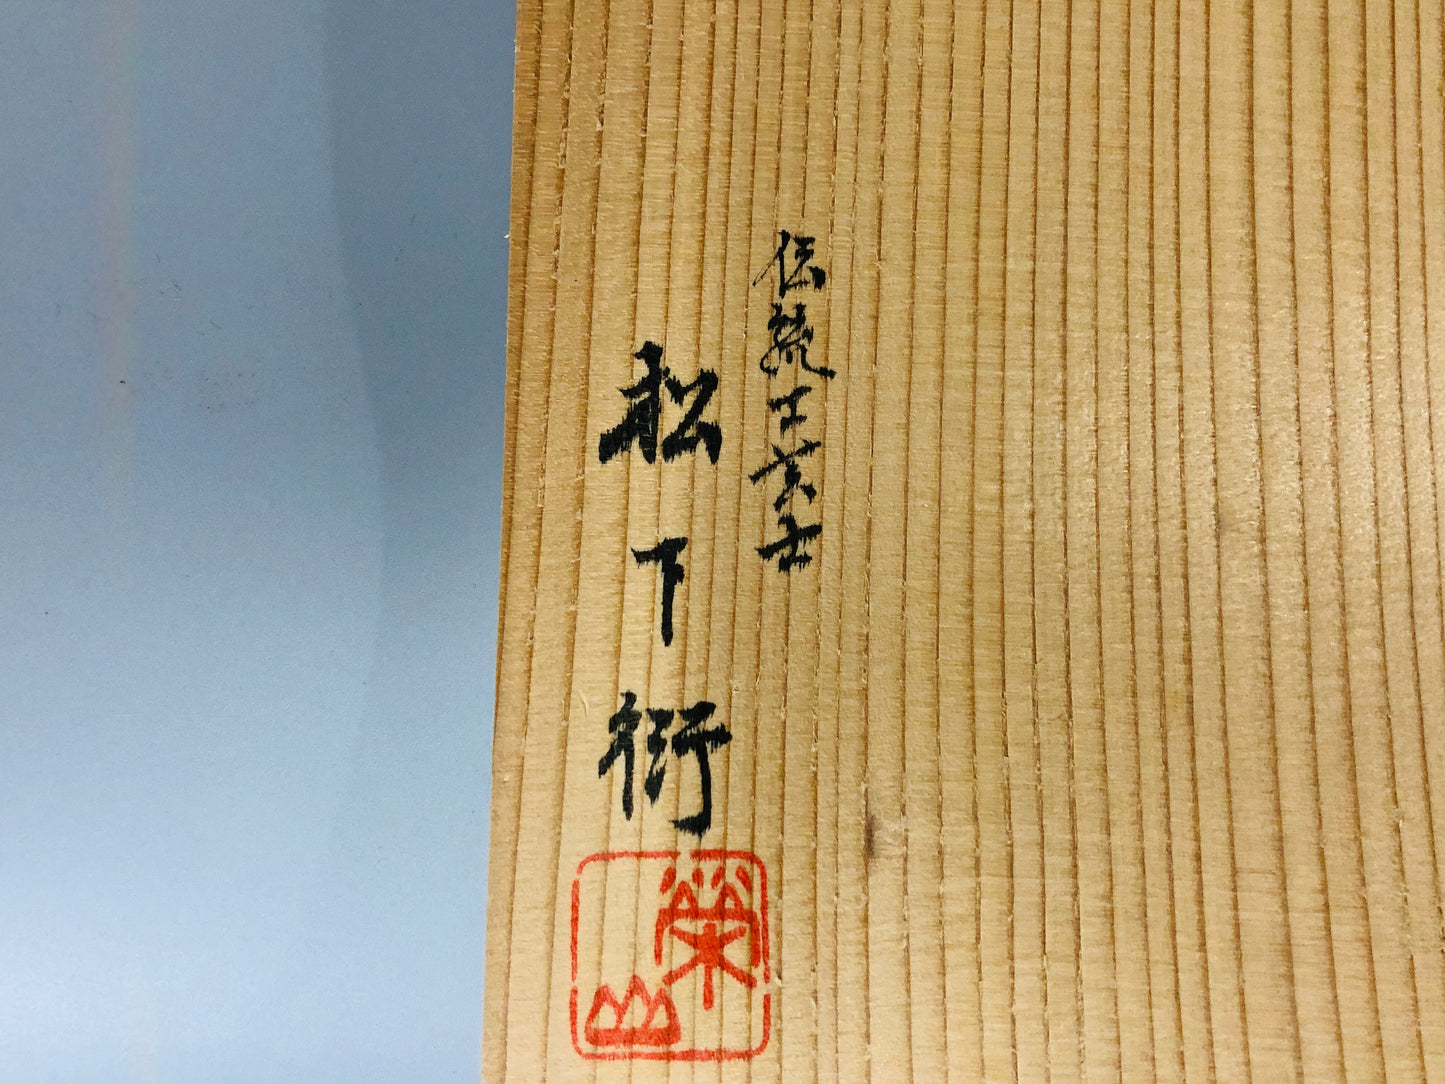 伝統工芸士
松下衍
榮山